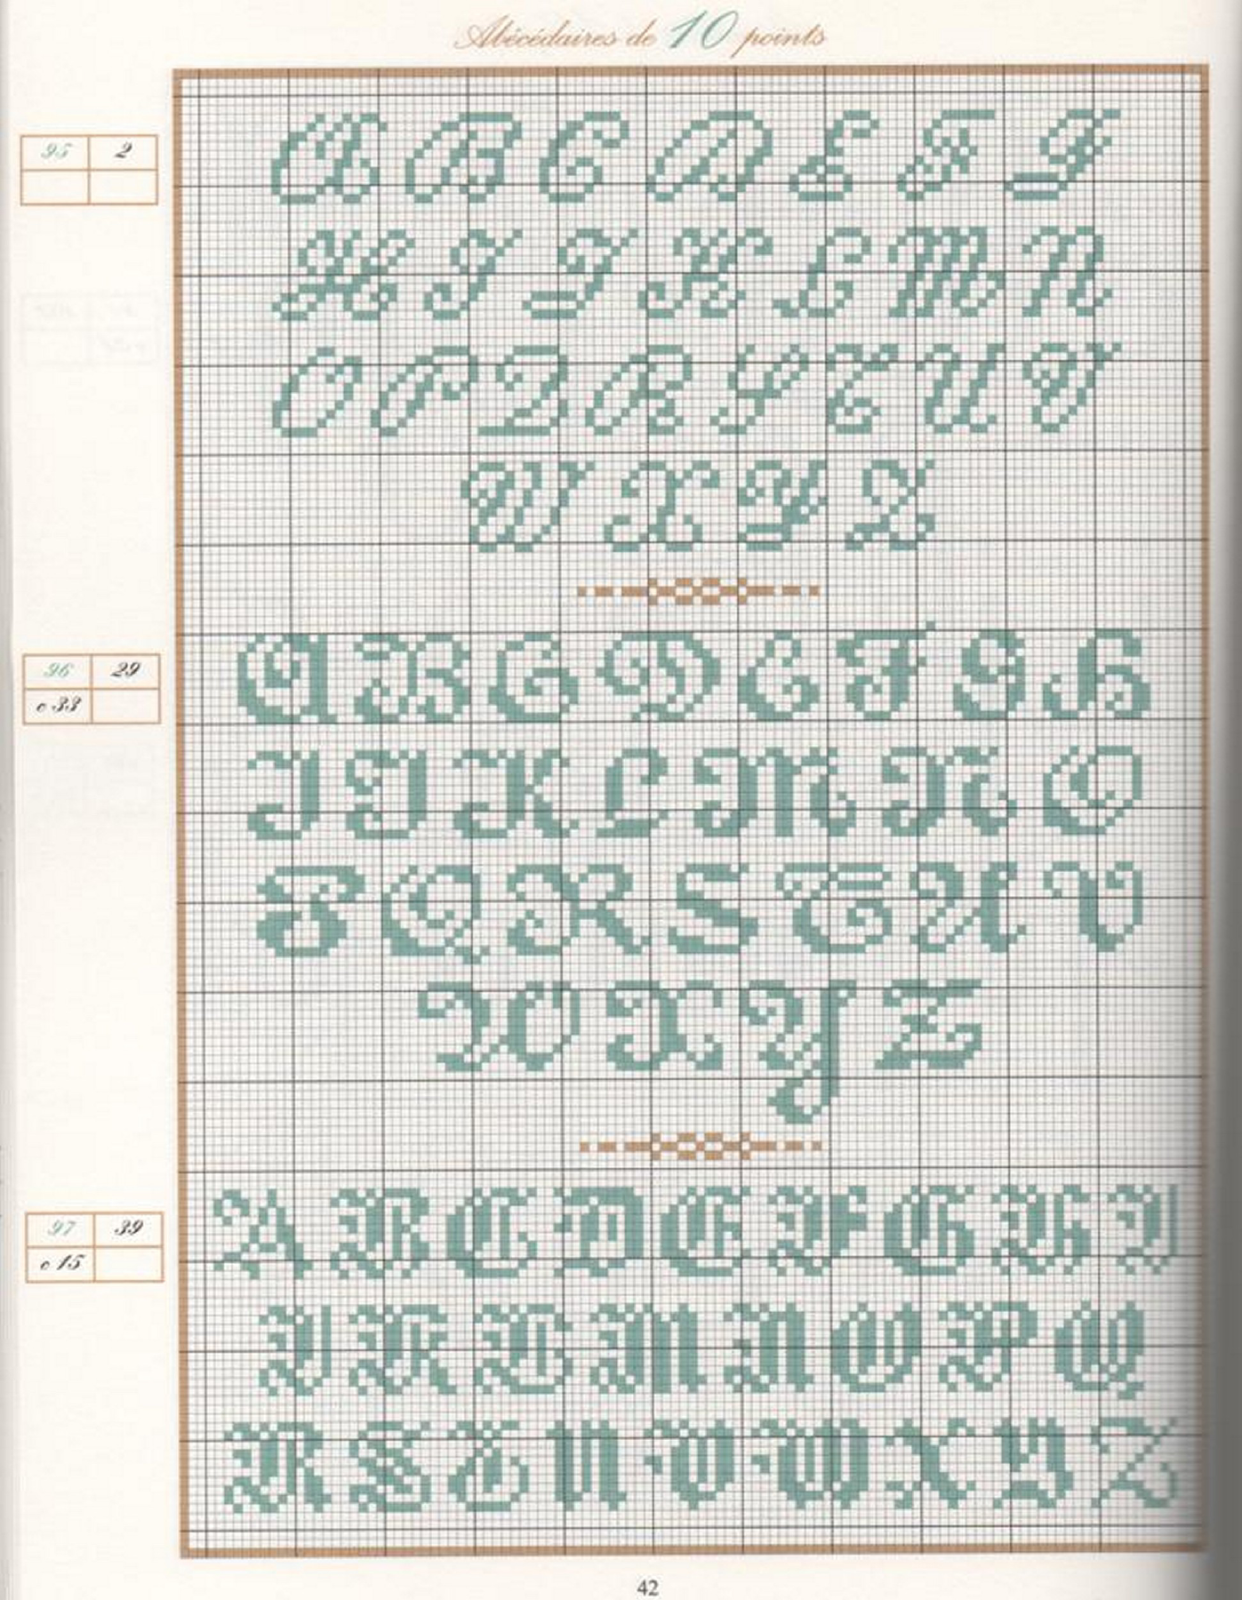 Abécédaires de 10 points
95 2
A B C D E F G
H I J K L M N
O P Q R S T U V
W X Y Z
96 29
c 33
A B C D E F G H
I J K L M N O
P Q R S T U V
W X Y Z
97 39
c 15
A B C D E F G H I
J K L M N O P Q
R S T U V W X Y Z
42